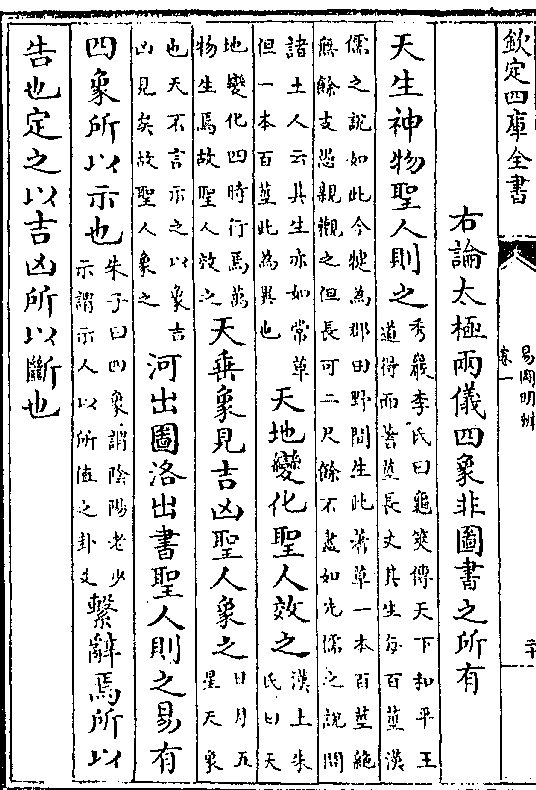 欽定四庫全書
易圖明辨
卷一
二十
右論太極兩儀四象非圖書之所有
天生神物聖人則之秀巖李氏曰龜筴傳天下和平王道得而蓍莖長丈其生每百莖漢
儒之說如此今犍為郡田野間生此蓍草一本百莖絶無餘支愚親觀之但長可二尺餘不盡如先儒之說問
諸土人云其生亦如常草但一本百莖此為異也天地變化聖人效之漢上朱氏曰天
地變化四時行焉萬物生焉故聖人效之天垂象見吉凶聖人象之日月五星天象
也天不言示之以象吉凶見矣故聖人象之河出圖洛出書聖人則之易有
四象所以示也朱子曰四象謂陰陽老少示謂示人以所值之卦爻繫辭焉所以
告也定之以吉凶所以斷也